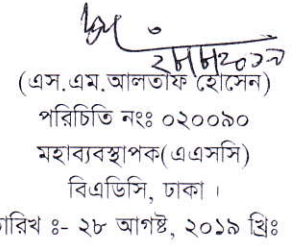 (এস.এম.আলতাফ হোসেন)
পরিচিতি নংঃ ০২০০৯০
মহাব্যবস্থাপক(এএসসি)
বিএডিসি, ঢাকা ।
তারিখ ঃ- ২৮ আগষ্ট, ২০১৯ খ্রিঃ